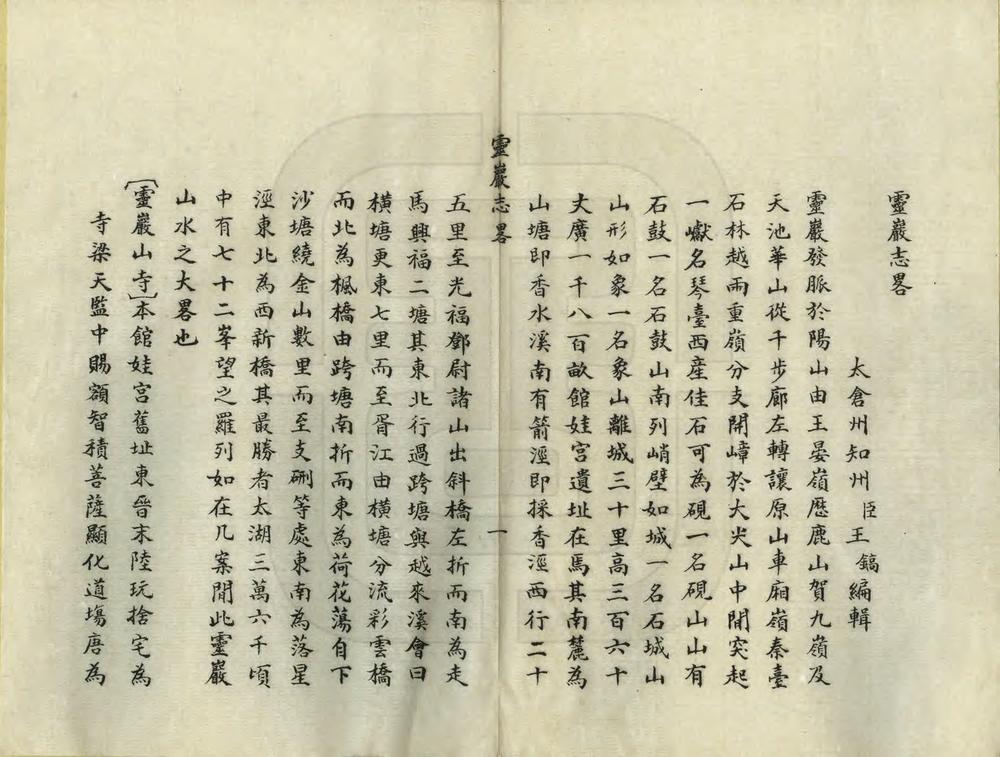 靈巖志畧
太倉州知州臣王鎬編輯
靈巖發脈於陽山由王晏嶺歷鹿山賀九嶺及
天池華山從千步廊左轉讓原山車廂嶺秦臺
石林越兩重嶺分支開嶂於大尖山中間突起
一巘名琴臺西產佳石可為硯一名硯山山有
石鼓一名石鼓山南列峭壁如城一名石城山
山形如象一名象山離城三十里高三百六十
丈廣一千八百畝館娃宮遺址在焉其南麓為
山塘即香水溪南有箭涇即採香涇西行二十
靈巖志畧 一
五里至光福鄧尉諸山出斜橋左折而南為走
馬興福二塘其東北行過跨塘與越來溪會曰
橫塘更東七里而至胥江由橫塘分流彩雲橋
而北為楓橋由跨塘南折而東為荷花蕩自下
沙塘繞金山數里而至支硎等處東南為落星
涇東北為西新橋其最勝者太湖三萬六千頃
中有七十二峯望之羅列如在几案間此靈巖
山水之大畧也
〔靈巖山寺〕本館娃宮舊址東晉末陸玩捨宅為
寺梁天監中賜額智積菩薩顯化道塲唐為